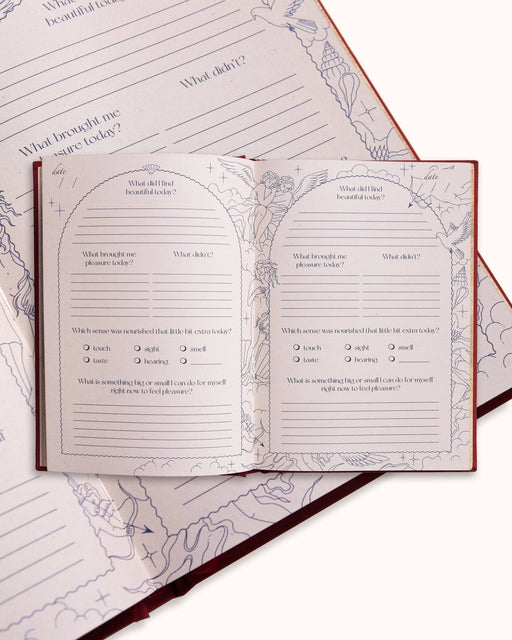 What did I find
beautiful today?
What didn't?
What brought me
pleasure today?
date
/ /
What did I find
beautiful today?
What brought me
pleasure today?
What didn't?
Which sense was nourished that little bit extra today?
touch
sight
smell
taste
hearing
What is something big or small I can do for myself
right now to feel pleasure?
date
/ /
What did I find
beautiful today?
What brought me
pleasure today?
What didn't?
Which sense was nourished that little bit extra today?
touch
sight
smell
taste
hearing
What is something big or small I can do for myself
right now to feel pleasure?